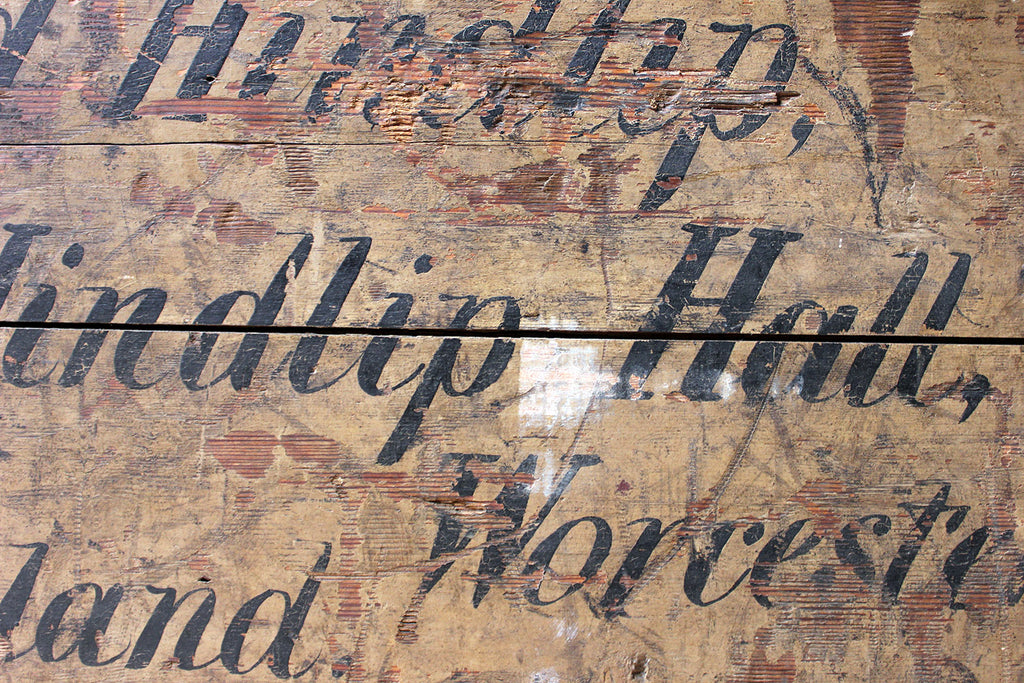 d Hindlip,
Hindlip Hall,
Worceste
land.